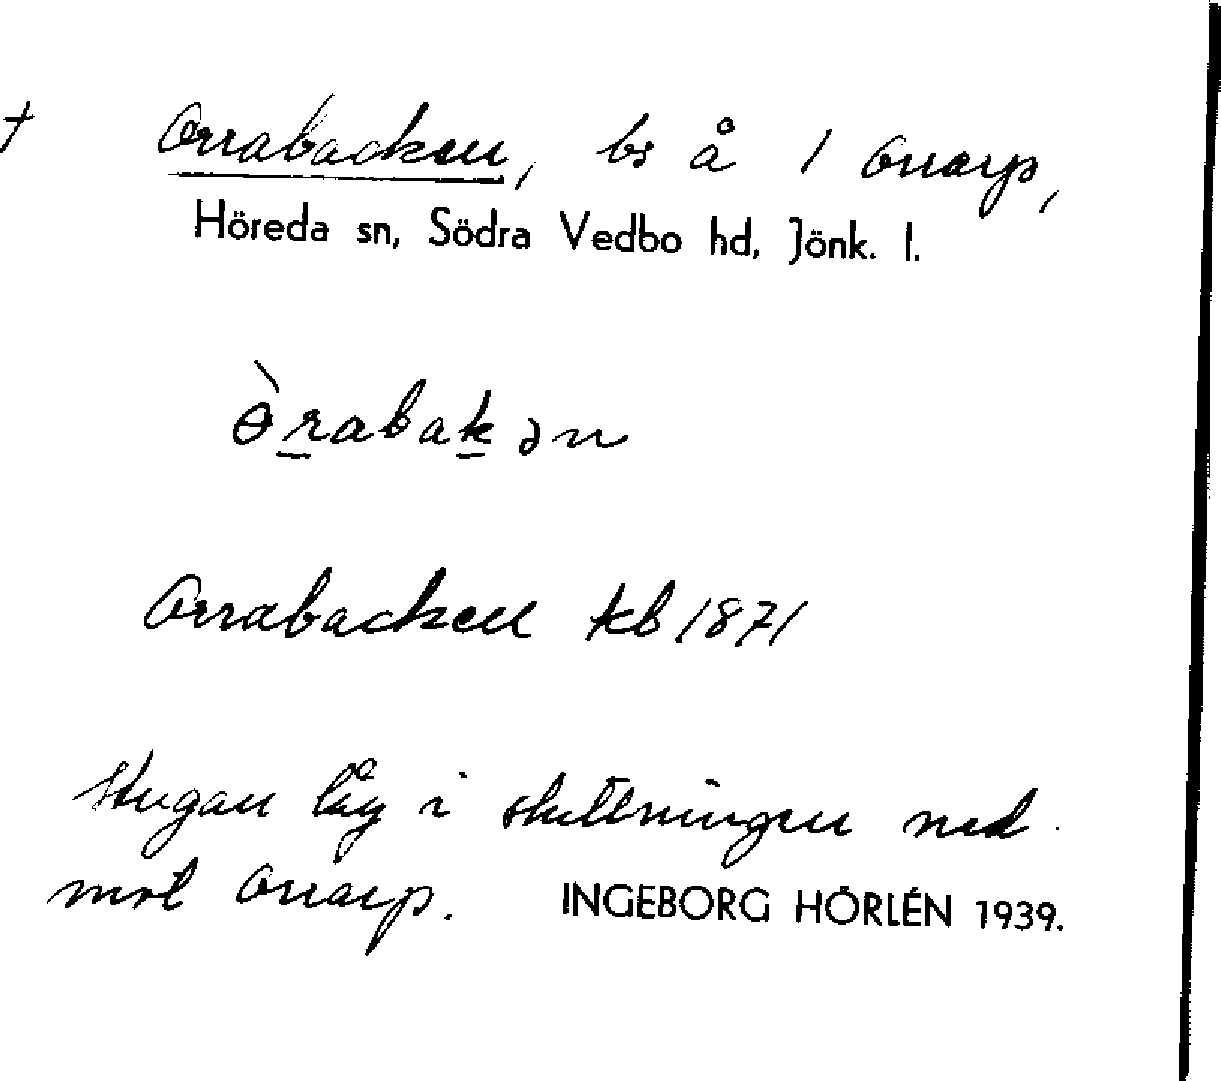 † Orrabacken, bs å / Orrarp,
Höreda sn, Södra Vedbo hd, Jönk. l.
ɵ̀rabakən
Orrabacken kb 1871
Stugan låg i sluttningen ned
mot Orrarp. INGEBORG HÖRLÉN 1939.